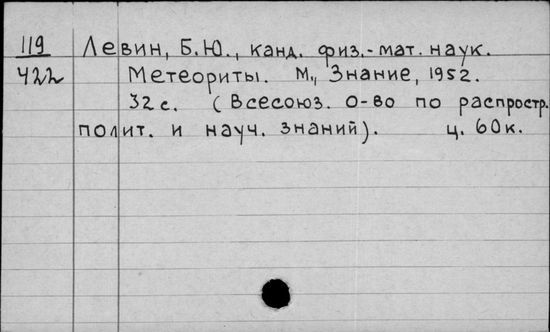 119 Левин, Б.Ю., канд. физ.-мат. наук.
422 Метеориты. М., Знание, 1952.
32 с. (Всесоюз. о-во по распростр.
полит. и науч. знаний). ц. 60к.